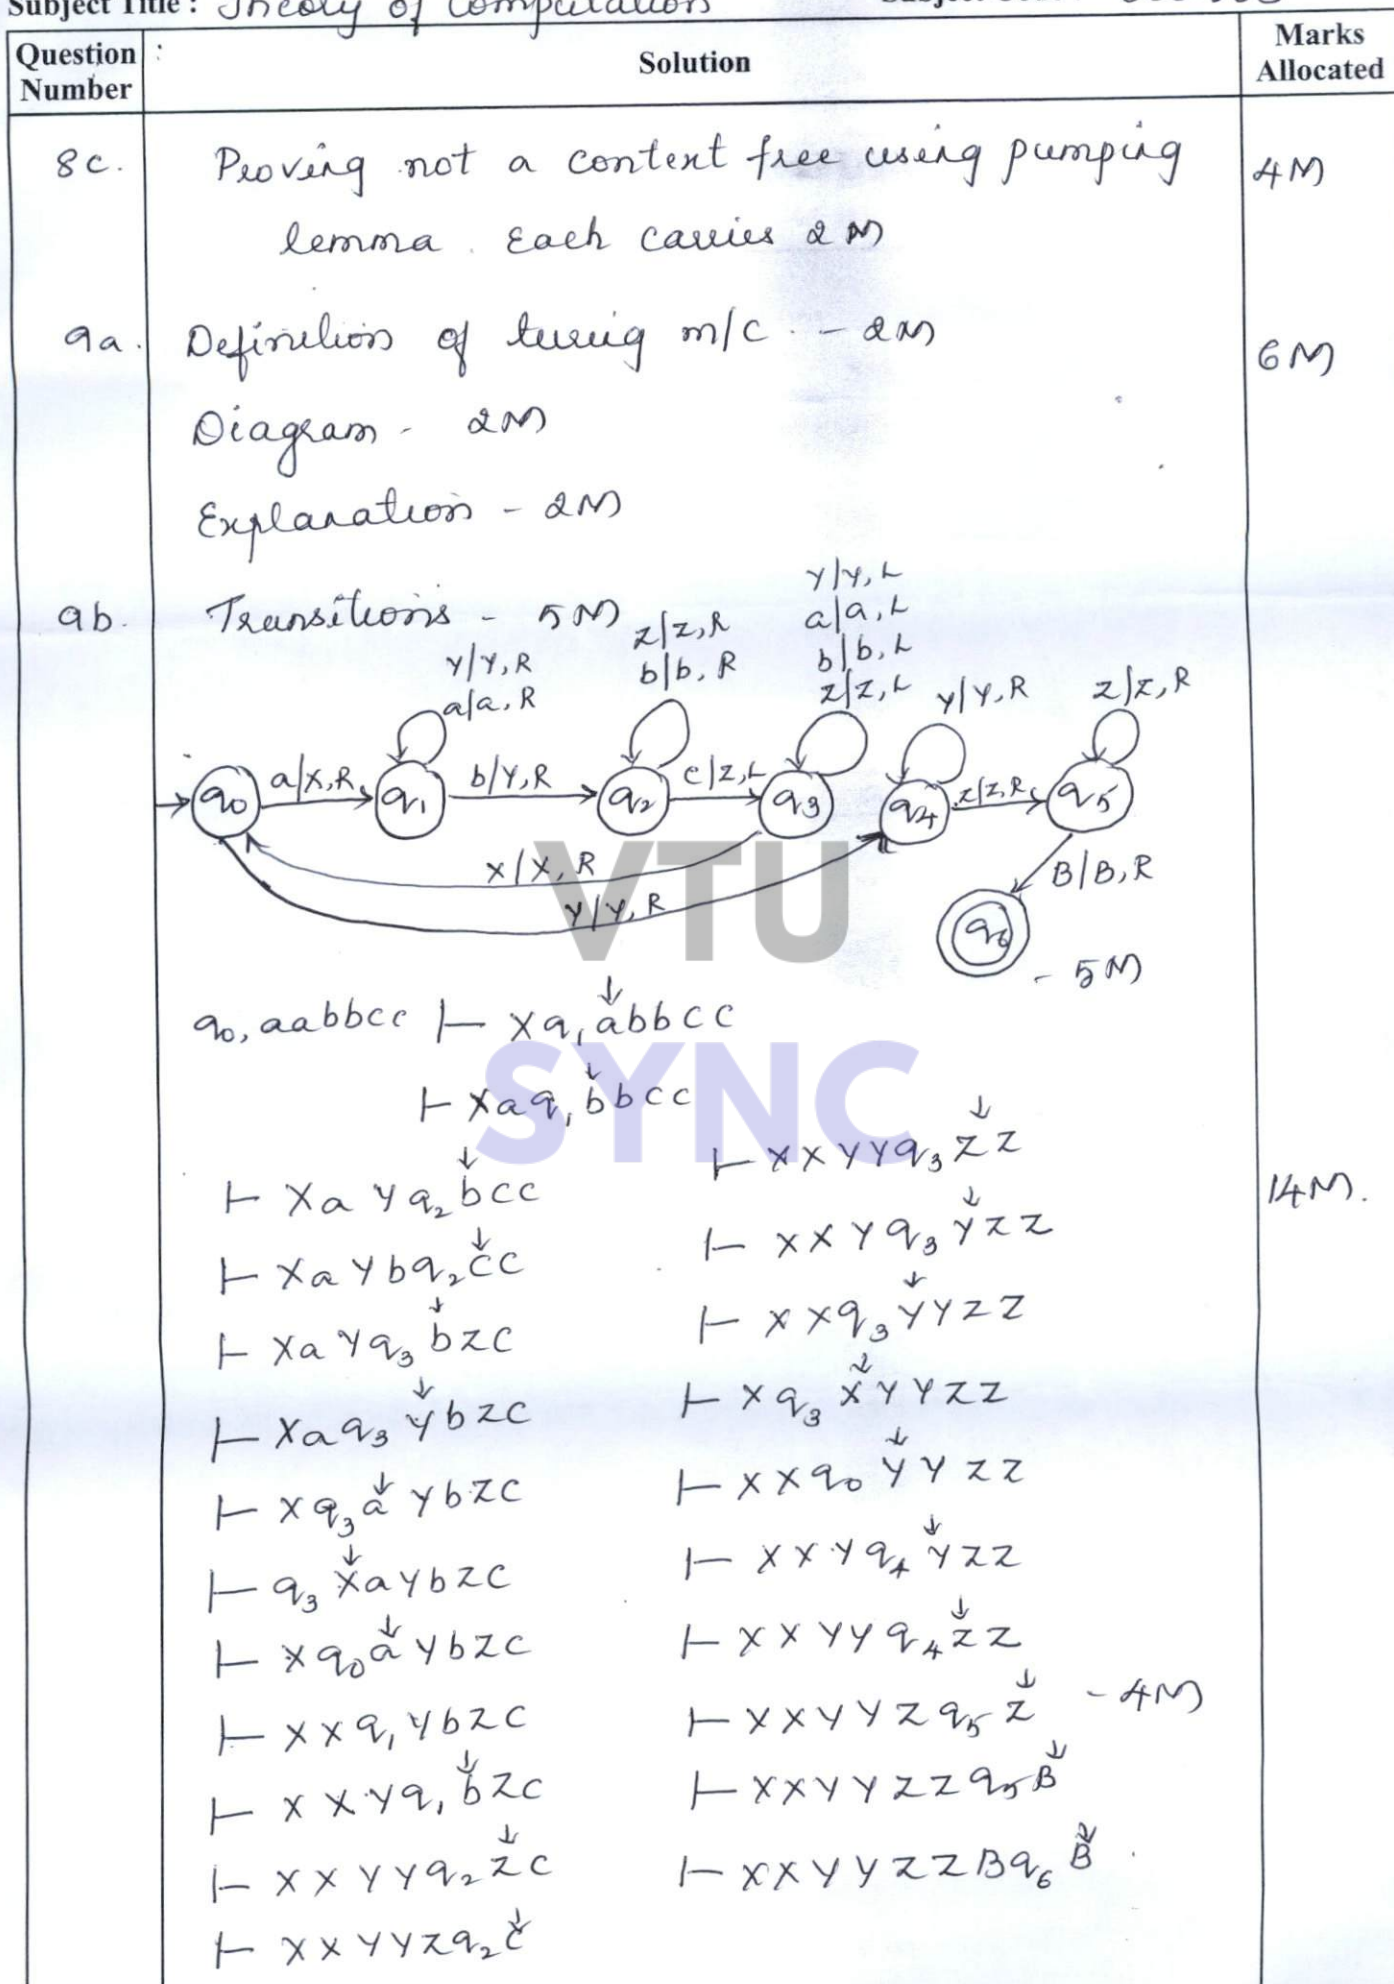 Subject Title : Theory of Computation
Question Number
:
Solution
Marks Allocated
8c.
Proving not a context free using pumping
4M
lemma. Each carries 2M
9a.
Definition of turing m/c - 2M
6M
Diagram - 2M
Explanation - 2M
9b.
Transitions - 5M
y/y, R
a/a, R
z/z, R
b/b, R
y/y, L
a/a, L
b/b, L
z/z, L
y/y, R
z/z, R
q0
a/X, R
q1
b/Y, R
q2
c/Z, L
q3
q4
z/z, R
q5
X/X, R
Y/Y, R
B/B, R
q6
- 5M
VTU
SYNC
q0, aabbcc ⊢ Xq1abbcc
⊢ Xaq1bbcc
⊢ XaYq2bcc
⊢ XaYbq2cc
⊢ XaYq3bZc
⊢ Xaq3YbZc
⊢ Xq3aYbZc
⊢ q3XaYbZc
⊢ Xq0aYbZc
⊢ XXq1YbZc
⊢ XXYq1bZc
⊢ XXYYq2Zc
⊢ XXYYZq2c
⊢ XXYYq3ZZ
⊢ XXYq3YZZ
⊢ XXq3YYZZ
⊢ Xq3XYYZZ
⊢ XXq0YYZZ
⊢ XXYq4YZZ
⊢ XXYYq4ZZ
⊢ XXYYZq5Z - 4M
⊢ XXYYZZq5B
⊢ XXYYZZBq6B
14M.